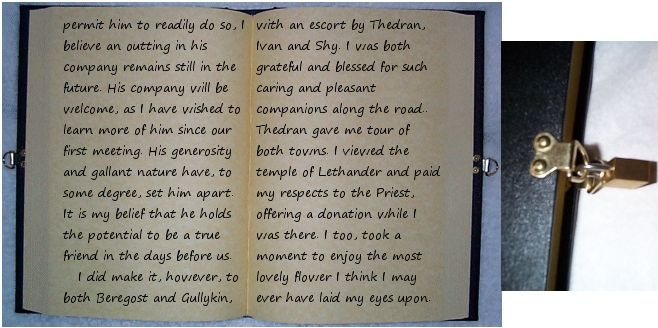 permit him to readily do so, I
believe an outting in his
company remains still in the
future. His company will be
welcome, as I have wished to
learn more of him since our
first meeting. His generosity
and gallant nature have, to
some degree, set him apart.
It is my belief that he holds
the potential to be a true
friend in the days before us.
I did make it, however, to
both Beregost and Gullykin,
with an escort by Thedran,
Ivan and Shy. I was both
grateful and blessed for such
caring and pleasant
companions along the road..
Thedran gave me tour of
both towns. I viewed the
temple of Lethander and paid
my respects to the Priest,
offering a donation while I
was there. I too, took a
moment to enjoy the most
lovely flower I think I may
ever have laid my eyes upon.